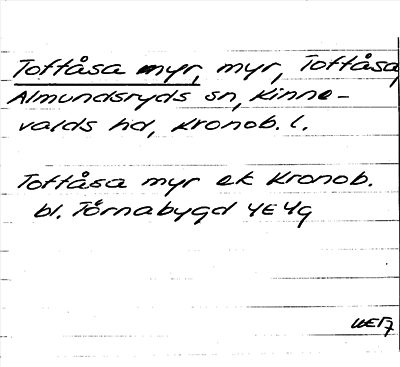 Toftåsa myr, myr, Toftåsa,
Almundsryds sn, Kinne-
valds hd, Kronob. l.
Toftåsa myr ek Kronob.
bl. Törnabygd 4E4g